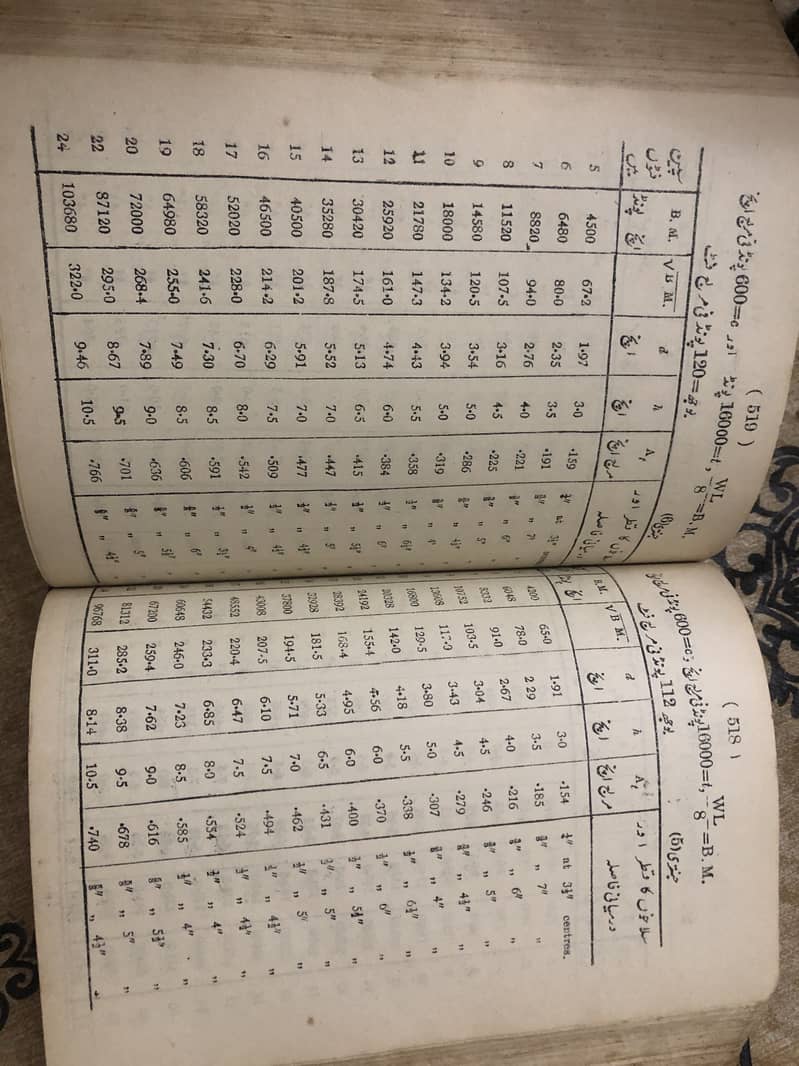 ( 518 )
جنتری (5) WL/8 =B. M. ,t=16000 پونڈ فی مربع انچ ;c=600 پونڈ فی مربع انچ
بوجھ 112 پونڈ فی مربع فٹ
B.M. √B M. d h A, سلاخوں کا قطر اور
انچ انچ مربع انچ درمیانی فاصلہ
4200 65·0 1·91 3·0 ·154 ¼" at 3½" centres.
6048 78·0 2·29 3·5 ·185 ⅜" „ 7" „
8232 91·0 2·67 4·0 ·216 ⅜" „ 6" „
10752 103·5 3·04 4·5 ·246 ⅜" „ 5" „
13608 117·0 3·43 4·5 ·279 ⅜" „ 4½" „
16800 129·5 3·80 5·0 ·307 ⅜" „ 4" „
20328 142·0 4·18 5·5 ·338 ½" „ 6½" „
24192 155·4 4·56 6·0 ·370 ½" „ 6" „
28392 168·4 4·95 6·0 ·400 ½" „ 5½" „
32928 181·5 5·33 6·5 ·431 ½" „ 5" „
37800 194·5 5·71 7·0 ·462 ½" „ 5" „
43008 207·5 6·10 7·5 ·494 ½" „ 4½" „
48552 220·4 6·47 7·5 ·524 ½" „ 4½" „
54432 233·3 6·85 8·0 ·554 ½" „ 4" „
60648 246·0 7·23 8·5 ·585 ½" „ 4" „
67200 259·4 7·62 9·0 ·616 ⅝" „ 5½" „
81312 285·2 8·38 9·5 ·678 ⅝" „ 5" „
96768 311·0 8·14 10·5 ·740 ⅝" „ 4½" „
( 519 )
جنتری (6) WL/8 =B. M. ,t=16000 پونڈ اور c=600 پونڈ فی مربع انچ
بوجھ=120 پونڈ فی مربع فٹ
سپین B. M. √B M. d h A, سلاخوں کا قطر اور
فٹوں میں انچ پونڈ انچ انچ مربع انچ درمیانی فاصلہ
5 4500 67·2 1·97 3·0 ·159 ¼" at 3½"
6 6480 80·0 2·35 3·5 ·191 ⅜" „ 7"
7 8820 94·0 2·76 4·0 ·221 ⅜" „ 6"
8 11520 107·5 3·16 4·5 ·225 ⅜" „ 5"
9 14580 120·5 3·54 5·0 ·286 ⅜" „ 4½"
10 18000 134·2 3·94 5·0 ·319 ⅜" „ 4"
11 21780 147·3 4·43 5·5 ·358 ½" „ 6½"
12 25920 161·0 4·74 6·0 ·384 ½" „ 6"
13 30420 174·5 5·13 6·5 ·415 ½" „ 5½"
14 35280 187·8 5·52 7·0 ·447 ½" „ 5"
15 40500 201·2 5·91 7·0 ·477 ½" „ 4½"
16 46500 214·2 6·29 7·5 ·509 ½" „ 4½"
17 52020 228·0 6·70 8·0 ·542 ½" „ 4"
18 58320 241·6 7·30 8·5 ·591 ½" „ 3½"
19 64980 255·0 7·49 8·5 ·606 ⅝" „ 6"
20 72000 268·4 7·89 9·0 ·636 ⅝" „ 5½"
22 87120 295·0 8·67 9·5 ·701 ⅝" „ 5"
24 103680 322·0 9·46 10·5 ·766 ⅝" „ 4½"